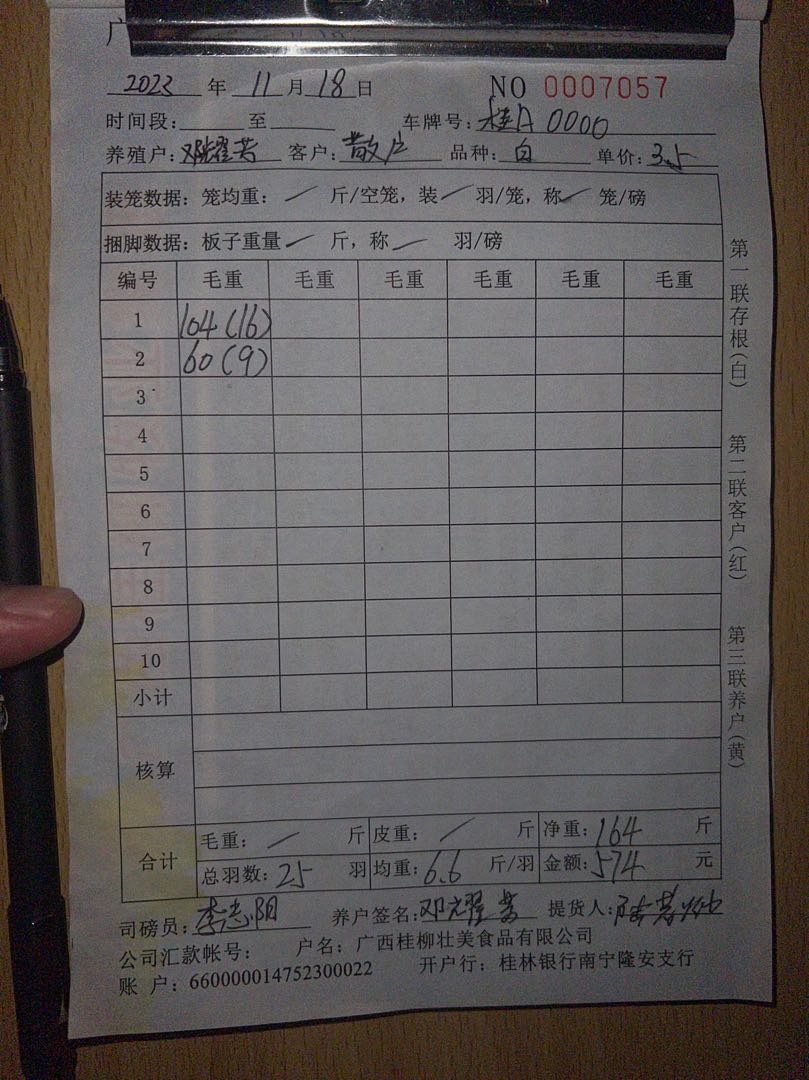 广
2023 年 11 月 18 日 NO 0007057
时间段: 至 车牌号: 桂A 0000
养殖户: 邓耀芳 客户: 散户 品种: 白 单价: 3.5
装笼数据: 笼均重: / 斤/空笼, 装 / 羽/笼, 称 / 笼/磅
捆脚数据: 板子重量 / 斤, 称 / 羽/磅
编号 毛重 毛重 毛重 毛重 毛重 毛重
1 104(16)
2 60(9)
3
4
5
6
7
8
9
10
小计
核算
合计 毛重: / 斤 皮重: / 斤 净重: 164 斤
总羽数: 25 羽 均重: 6.6 斤/羽 金额: 574 元
司磅员: 李志阳 养户签名: 提货人:
公司汇款帐号: 户名: 广西桂柳壮美食品有限公司
账 户: 660000014752300022 开户行: 桂林银行南宁隆安支行
第一联存根(白)
第二联客户(红)
第三联养户(黄)